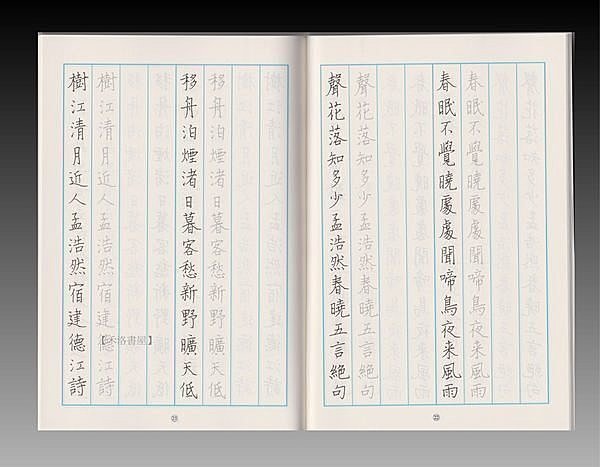 春眠不覺曉處處聞啼鳥夜来風雨
春眠不覺曉處處聞啼鳥夜来風雨
聲花落知多少孟浩然春曉五言絕句
聲花落知多少孟浩然春曉五言絕句
移舟泊煙渚日暮客愁新野曠天低
移舟泊煙渚日暮客愁新野曠天低
樹江清月近人孟浩然宿建德江詩
樹江清月近人孟浩然宿建德江詩